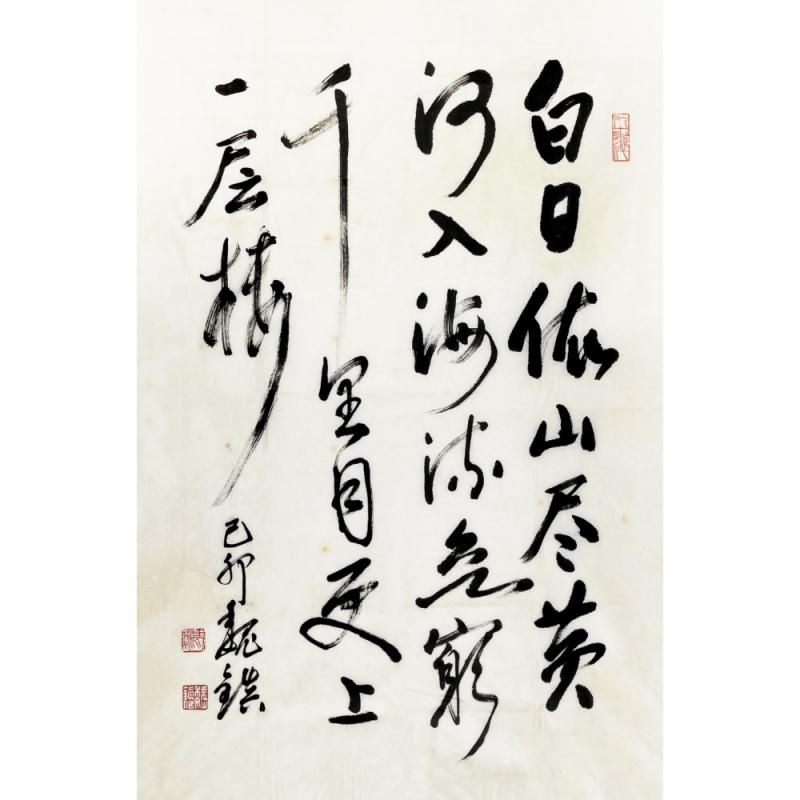 白日依山尽黄
河入海流欲窮
千里目更上
一层楼
己卯魏